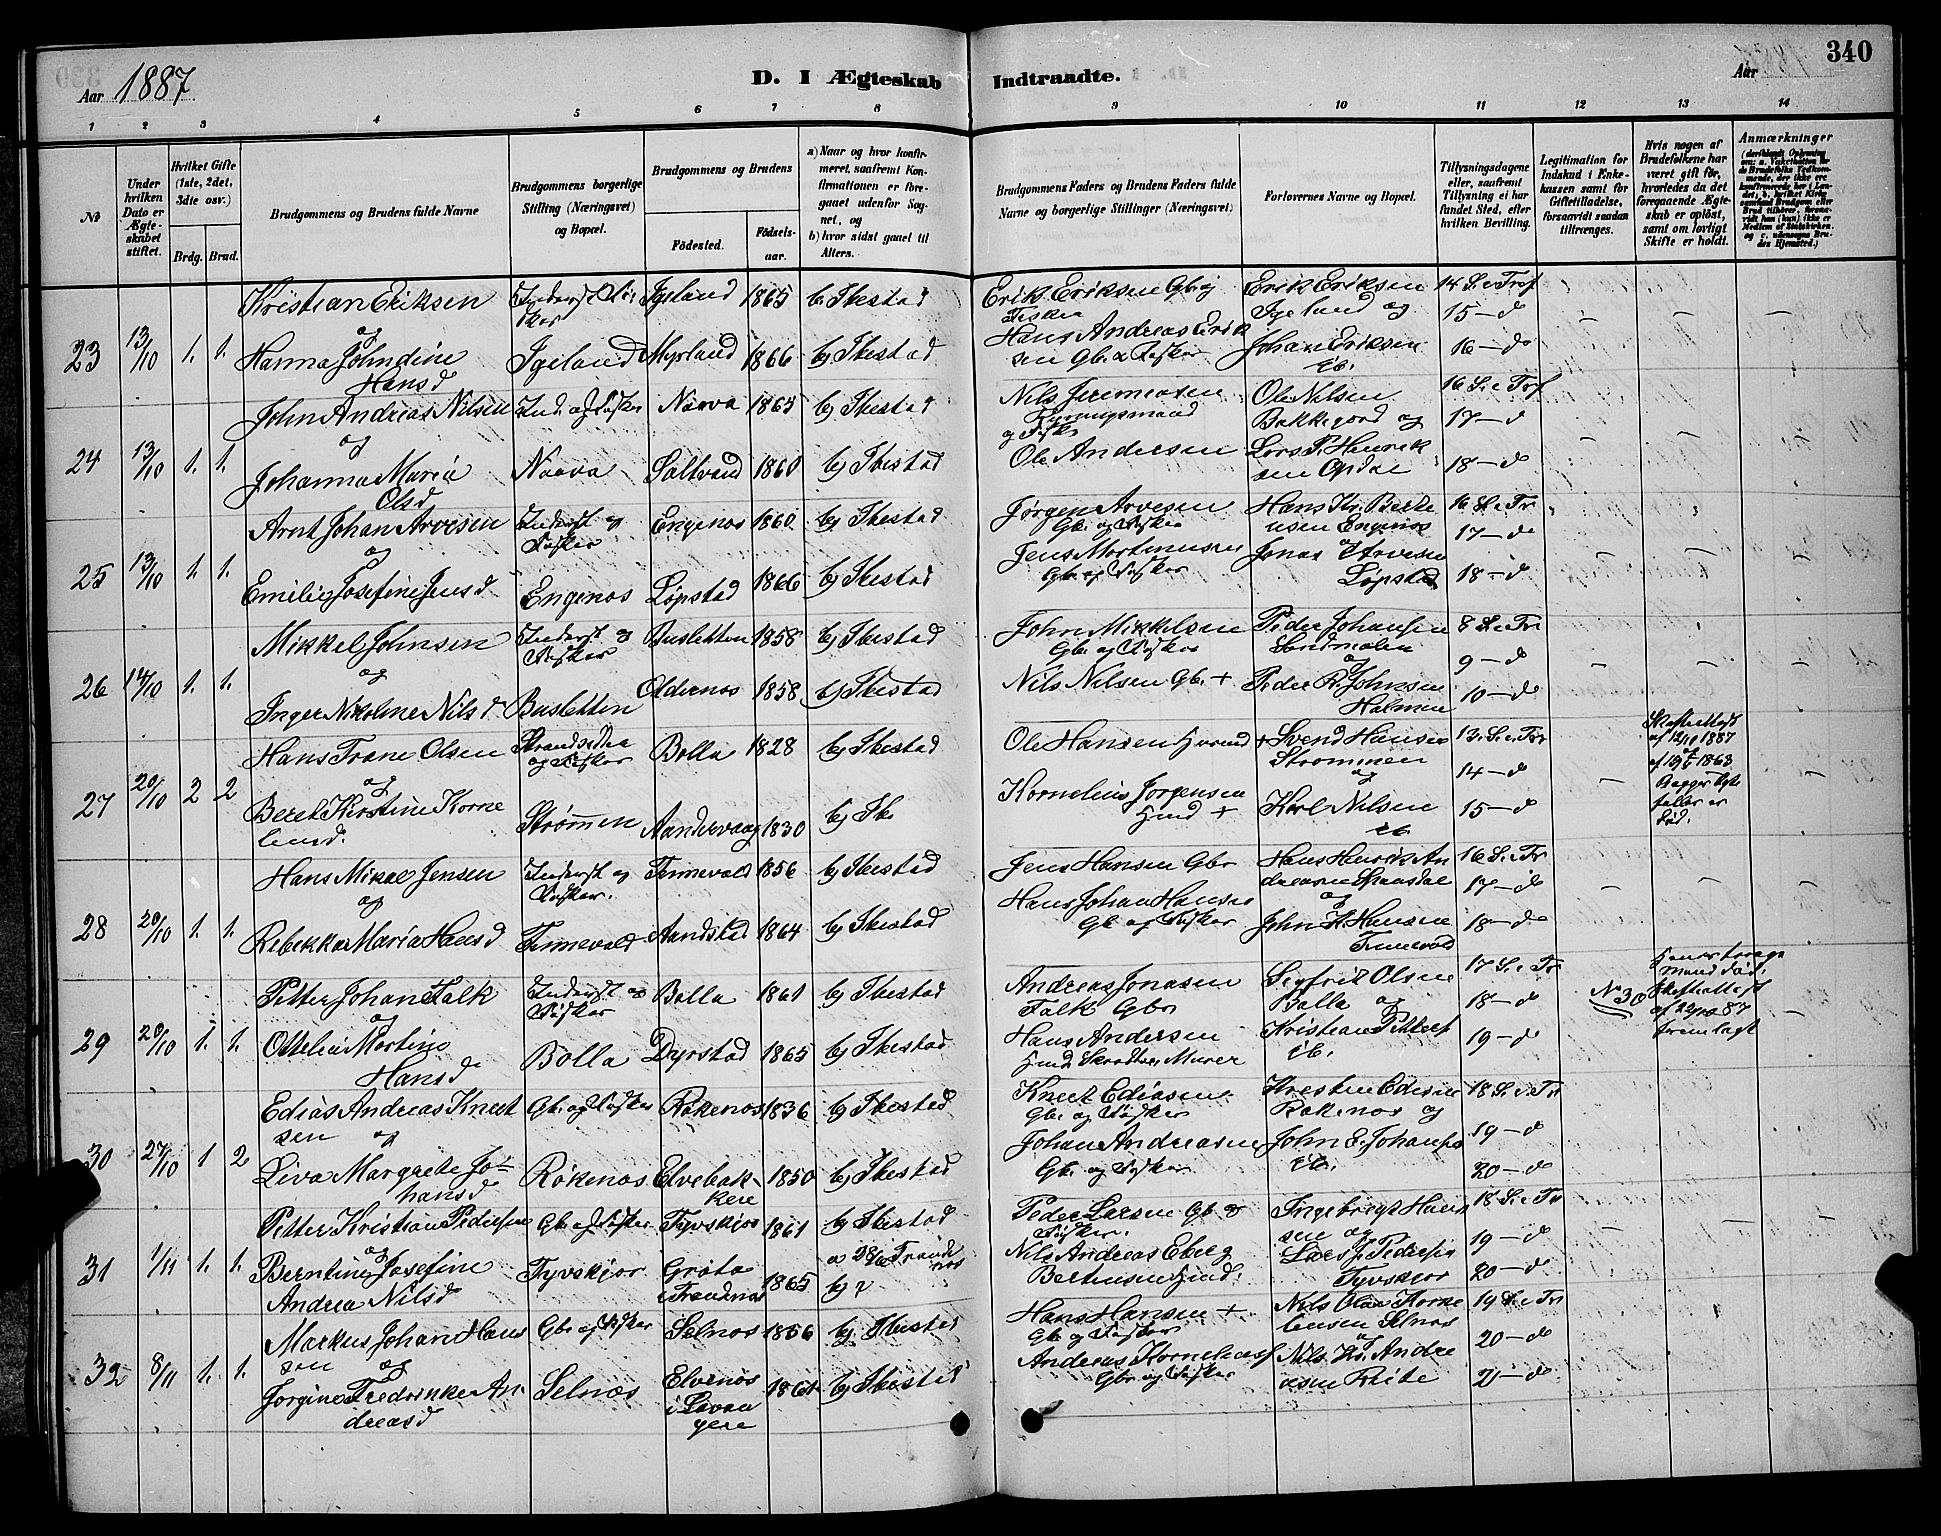 340
Aar 1887
D. I Ægteskab Indtraadte.
Aar
1 2 3 4 5 6 7 8 9 10 11 12 13 14
No
Under hvilken Dato er Ægteskabet stiftet.
Hvilket Gifte (1ste, 2det, 3die osv.)
Brdg. Brud.
Brudgommens og Brudens fulde Navne
Brudgommens borgerlige Stilling (Næringsvei) og Bopæl.
Brudgommens og Brudens
Fødested.
Fødselsaar.
a) Naar og hvor konfirmeret, saafremt Konfirmationen er foregaaet udenfor Sognet, og
b) hvor sidst gaaet til Alters.
Brudgommens Faders og Brudens Faders fulde Navne og borgerlige Stillinger (Næringsvei)
Forlovernes Navne og Bopæl.
Tillysningsdagene eller, saafremt Tillysning ei har fundet Sted, efter hvilken Bevilling.
Legitimation for Indskud i Enkekassen samt for Giftetilladelse, forsaavidt saadan tiltrænges.
Hvis nogen af Brudefolkene har været gift før, hvorledes da det foregaaende Ægteskab er opløst, samt om lovligt Skifte er holdt.
Anmærkninger
23 13/10 1. 1.
Kristian Eriksen
og
Hanna Johndine
Hansd
Igeland 1865 b) Ibestad
Igeland Myrland 1866 b) Ibestad
Erik Eriksen Gbr. og
Fisker
Hans Andreas Erik
sen Gb. & Fisker
Erik Eriksen
Igeland og
Johan Eriksen
ib.
14 S. e Tref
15 – d
16 – do
24 13/10 1. 1.
John Andreas Nilsen
og
Johanna Maria
Olsd
Ind. og Fisker Naava 1865 b) Ibestad
Naava Saltvand 1860 b) Ibestad
Nils Jeremiasen
og Fisker
Ole Andersen
Ole Nilsen
Bakkejord og
Lars P. Henrik
sen Opdal
16 S. e Tref
17 – d
18 – d
25 13/10 1. 1.
Arnt Johan Arvesen
og
Emilie Josefine Jensd
Inderst og
Fisker
Engenes 1860 b) Ibestad
Engenes Løpstad 1866 b) Ibestad
Jørgen Arvesen
Gb. og Fisker
Jens Mortensen
Gb. og Fisker
Hans Kr. Berte
usen Engenes
Jonas Arvesen
Løpstad
16 S. e Tr
17 – d
18 – d
26 14/10 1. 1.
Mikkel Johnsen
og
Inger Nikoline Nilsd
Inderst og
Fisker
Busletten 1858 b) Ibestad
Busletten Oldernes 1858 b) Ibestad
John Mikkelsen
Gb. og Fisker
Nils Nilsen Gb. +
Peder Johansen
Sandmælen
og
Peder R. Johnsen
Holmen
8 S. e Tr
9 – d
10 – d
27 20/10 2 2
Hans Trane Olsen
og
Beret Kirstine Korne
liusd.
Strandsidder
og Fisker
Bolla 1828 b) Ibestad
Strømmen Aandervaag 1830 b) Ibe
Ole Hansen Husmd +
Kornelius Jørgensen
Husmd +
Svend Hansen
Strømmen
og
Karl Nilsen
ib.
13. S. e Tr
14 – d
15 – d
Skifteattest
af 12/10 1887
og
af 19/5 1863
Begges Ægte
fæller er
død.
28 20/10 1. 1.
Hans Mikal Jensen
og
Rebekka Maria Hansd
Inderst og
Fisker.
Tennevold 1856 b) Ibestad
Tennevold Aandstad 1864 b) Ibestad
Jens Hansen Gbr
Hans Johan Hansen
Gb. og Fisker
Hans Henrik An
dreasen Spansdal
og
John H. Hansen
Tennevold
16 S. e Tr
17 – d
18 – do
29 20/10 1. 1.
Petter Johan Falk
og
Ottelie Martine
Hansd
Inderst og
Fisker
Bolla 1861 b) Ibestad
Bolla Dyrstad 1865 b) Ibestad
Andreas Jonasen
Falk Gbr
Hans Andersen
Husmd. Murer
Sigfrit Olsen
Bolla og
Kristian Pettersen
ib.
17 S. e Tr
18 – d
19 – d
No 30
Hendes forrige
Mand død.
Skifteattest
87
fremlagt
30 27/10 1 2
Edias Andreas Knut
sen og
Liva Margrete Jo-
hansd
Gb. og Fisker Røkenes 1836 b) Ibestad
Røkenes Elvebak-
ken 1850 b) Ibestad
Knut Ediasen
Gb. og Fisker
Johan Andreasen
Gb. og Fisker
Kristen Ediasen
Røkenes og
John E. Johansen
ib.
18 S. e Tr
19 – d
20 – d
31 1/11 1. 1.
Petter Kristian Pedersen
og
Berntine Josefine
Andrea Nilsd
Gb. og Fisker Tyvskjær 1861 b) Ibestad
Tyvskjær Grøtø
i Trondenes 1865
a 28/6 Tronde
nes
b) ?
Peder Larsen Gb. og
Fisker.
Nils Andreas Eberg
Berthinsen Husmd.
Ingebrigt Han
sen og
Lars J. Pedersen
Tyvskjær
18 S. e Tr
19 – d
20 – d
32 8/11 1. 1.
Markus Johan Han
sen og
Jørgine Fredrikke An
dreasd
Gb. og Fisker Selnes 1856 b) Ibestad
Selnæs Elvenes
i Lavan
gen 1861 b) Ibestad
Hans Hansen +
Gb. og Fisker
Andreas Korneliusen
Gbr. og Fisker
Nils Olai Korne
liusen Selnes
og
Nils Kr. Andre
asen
19 S. e Tr
20 – do
21 – d